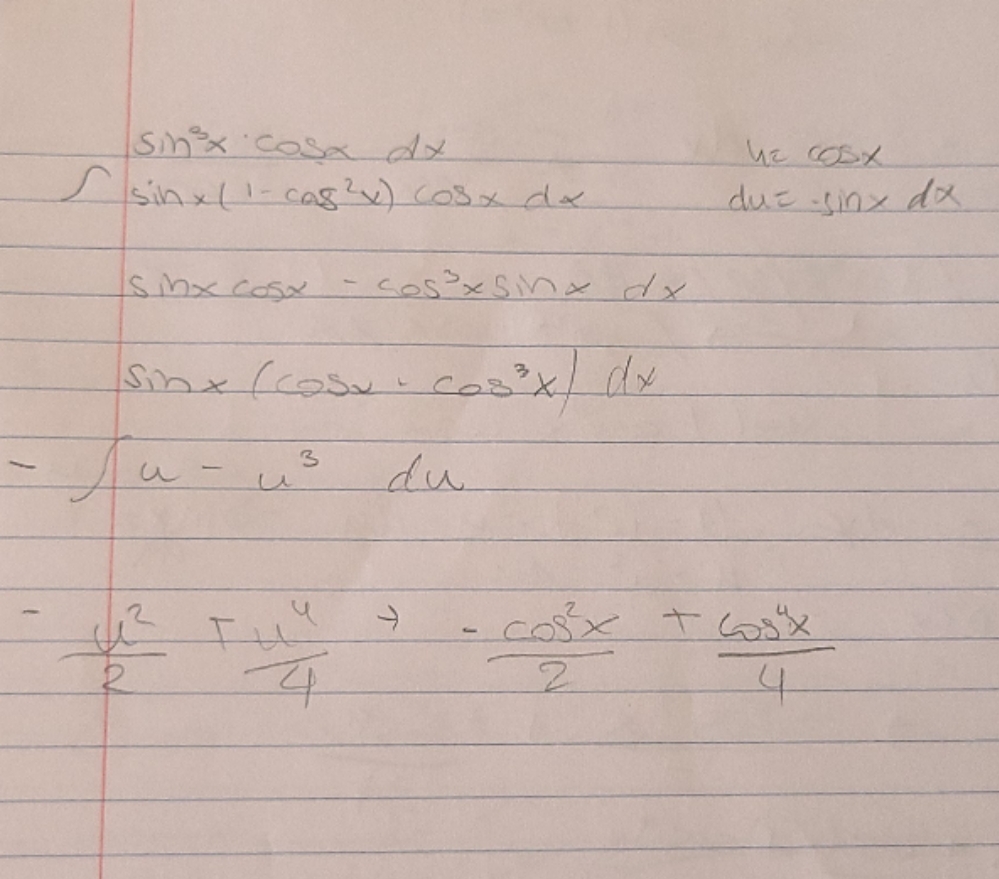 sin³x · cosx dx u= cosx
∫ sinx(1 - cos²x) cosx dx du= -sinx dx
sinx cosx - cos³x sinx dx
sinx (cosx - cos³x) dx
- ∫ u - u³ du
- u²/2 + u⁴/4 → - cos²x/2 + cos⁴x/4